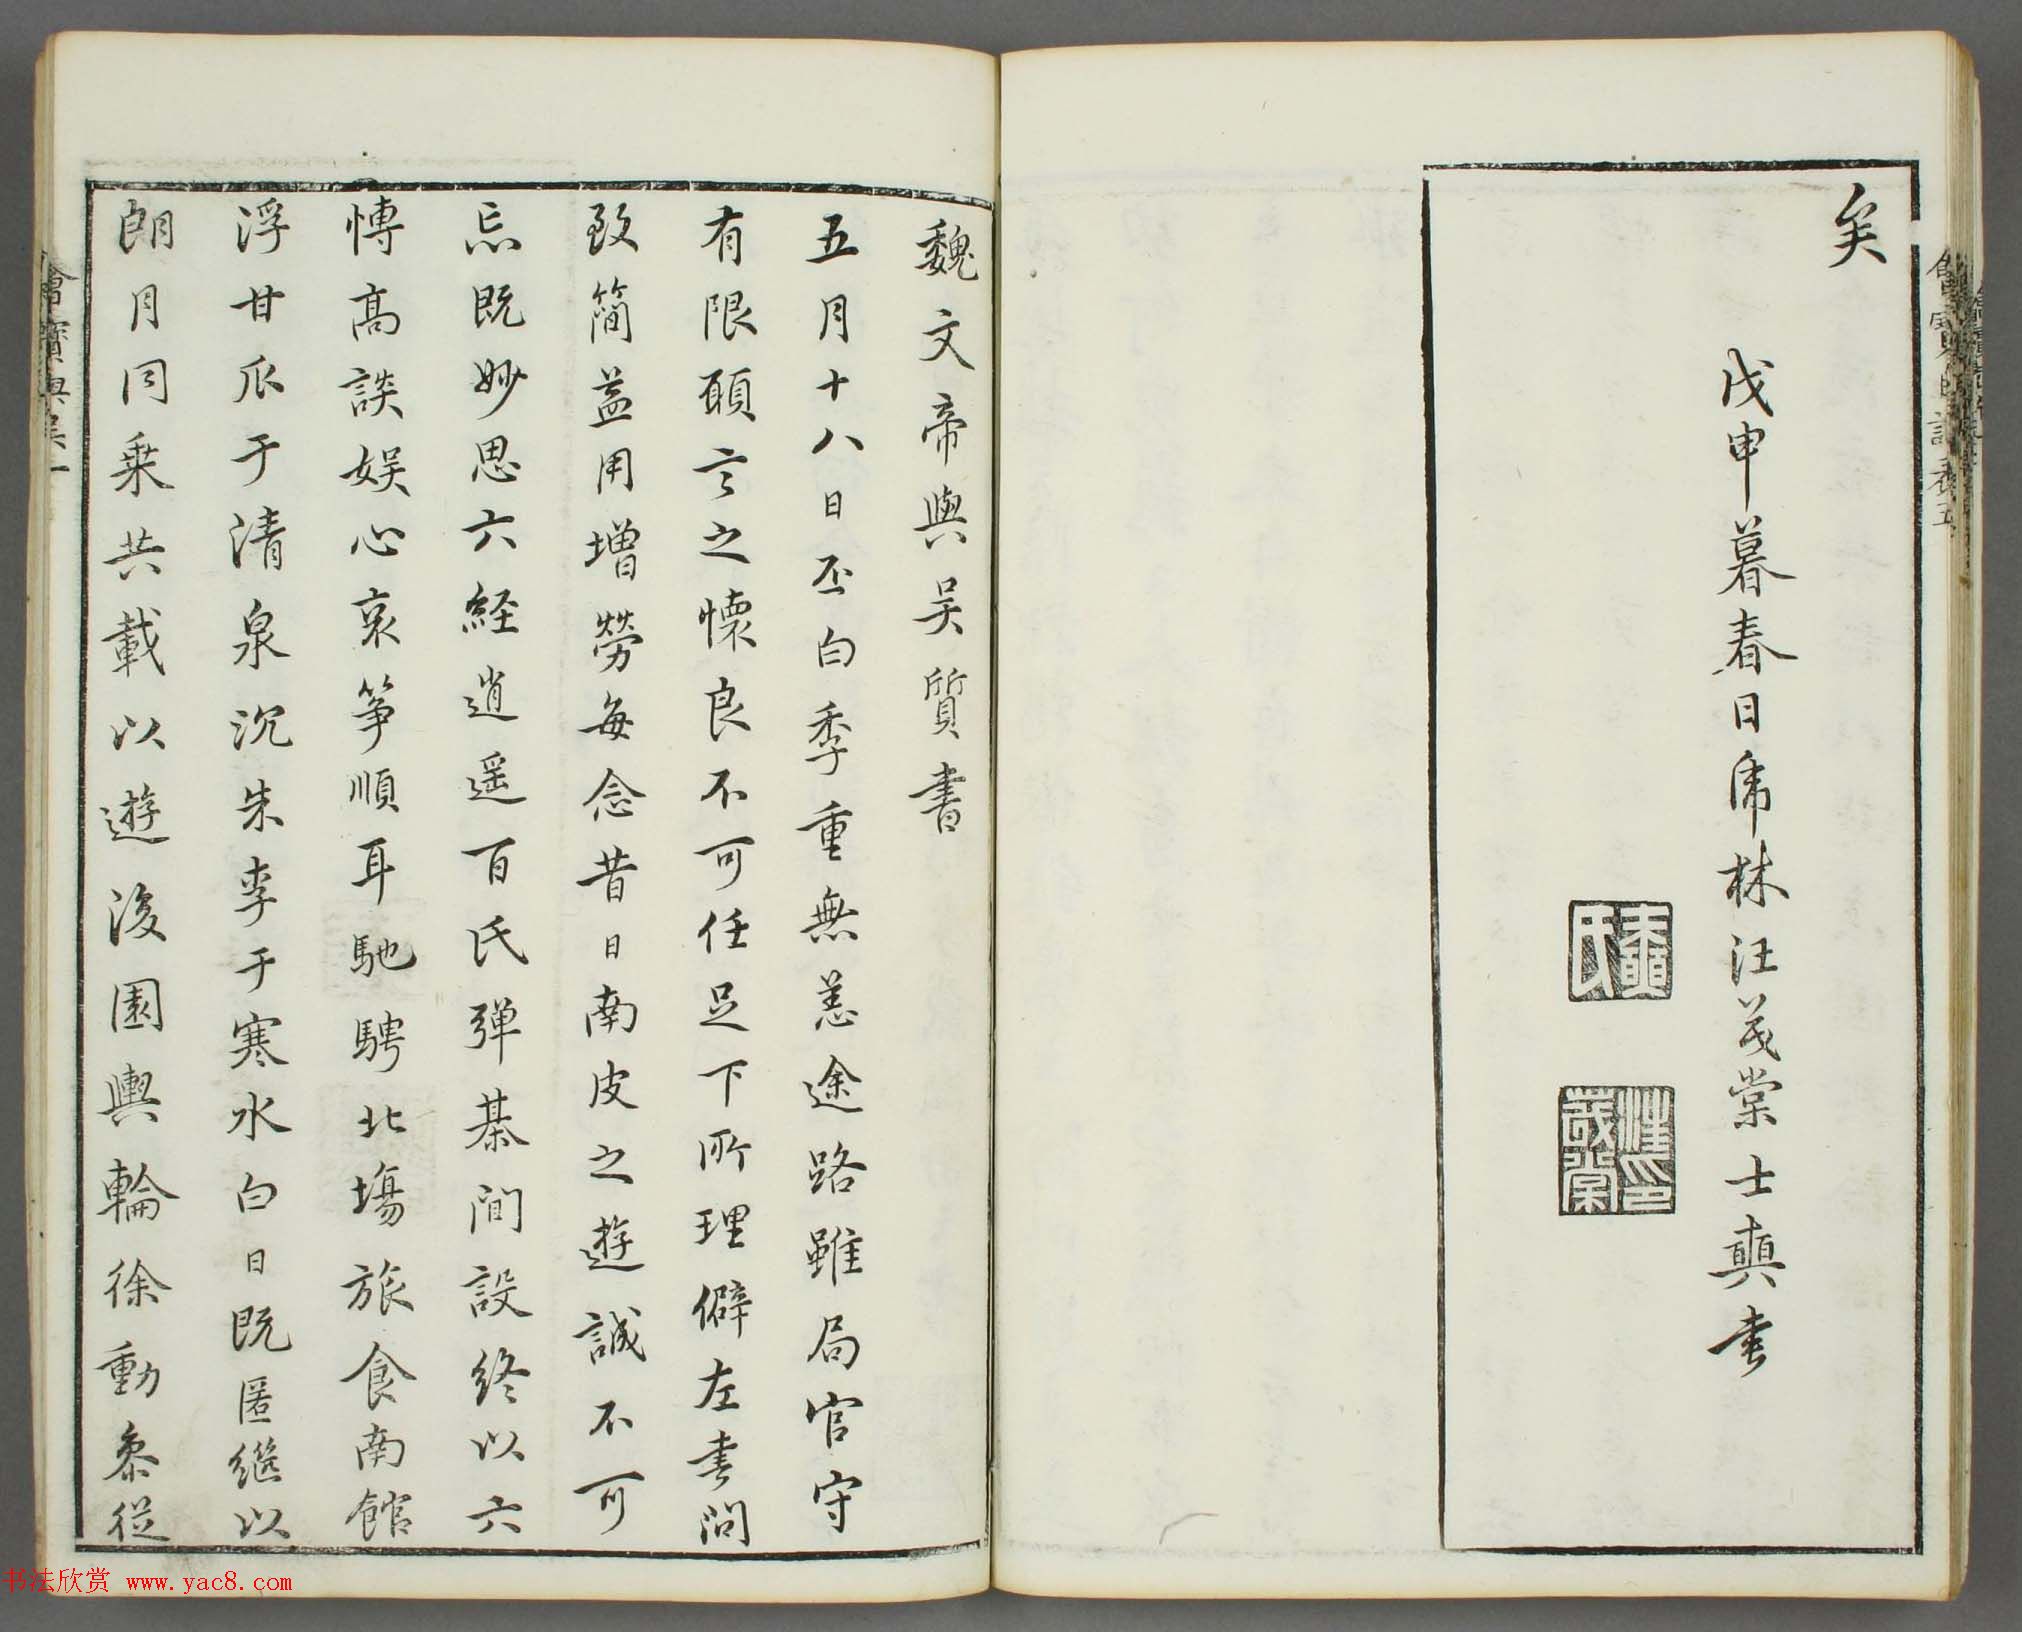 矣
戊申暮春日虎林汪茂棠士𩔊書
魏文帝與吴質書
五月十八日丕白季重無恙途路雖局官守
有限願言之懷良不可任足下所理僻左書問
致簡益用增勞每念昔日南皮之遊誠不可
忘既妙思六經逍遥百氏彈棊間設終以六
愽高談娱心哀筝順耳馳騁北塲旅食南館
浮甘瓜于清泉沉朱李于寒水白日既匿继以
朗月同乗共載以遊後園輿輪徐動叅從
书法欣赏 www.yac8.com